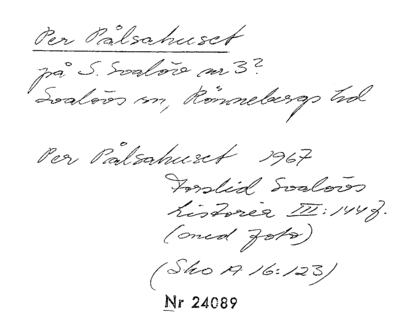 Per Pålsahuset
på S. Svalöv nr 3?
Svalövs sn, Rönnebergs hd
Per Pålsahuset 1967
Forslid Svalövs
historia III: 144 f.
(med foto)
(Sko A 16:123)
Nr 24089